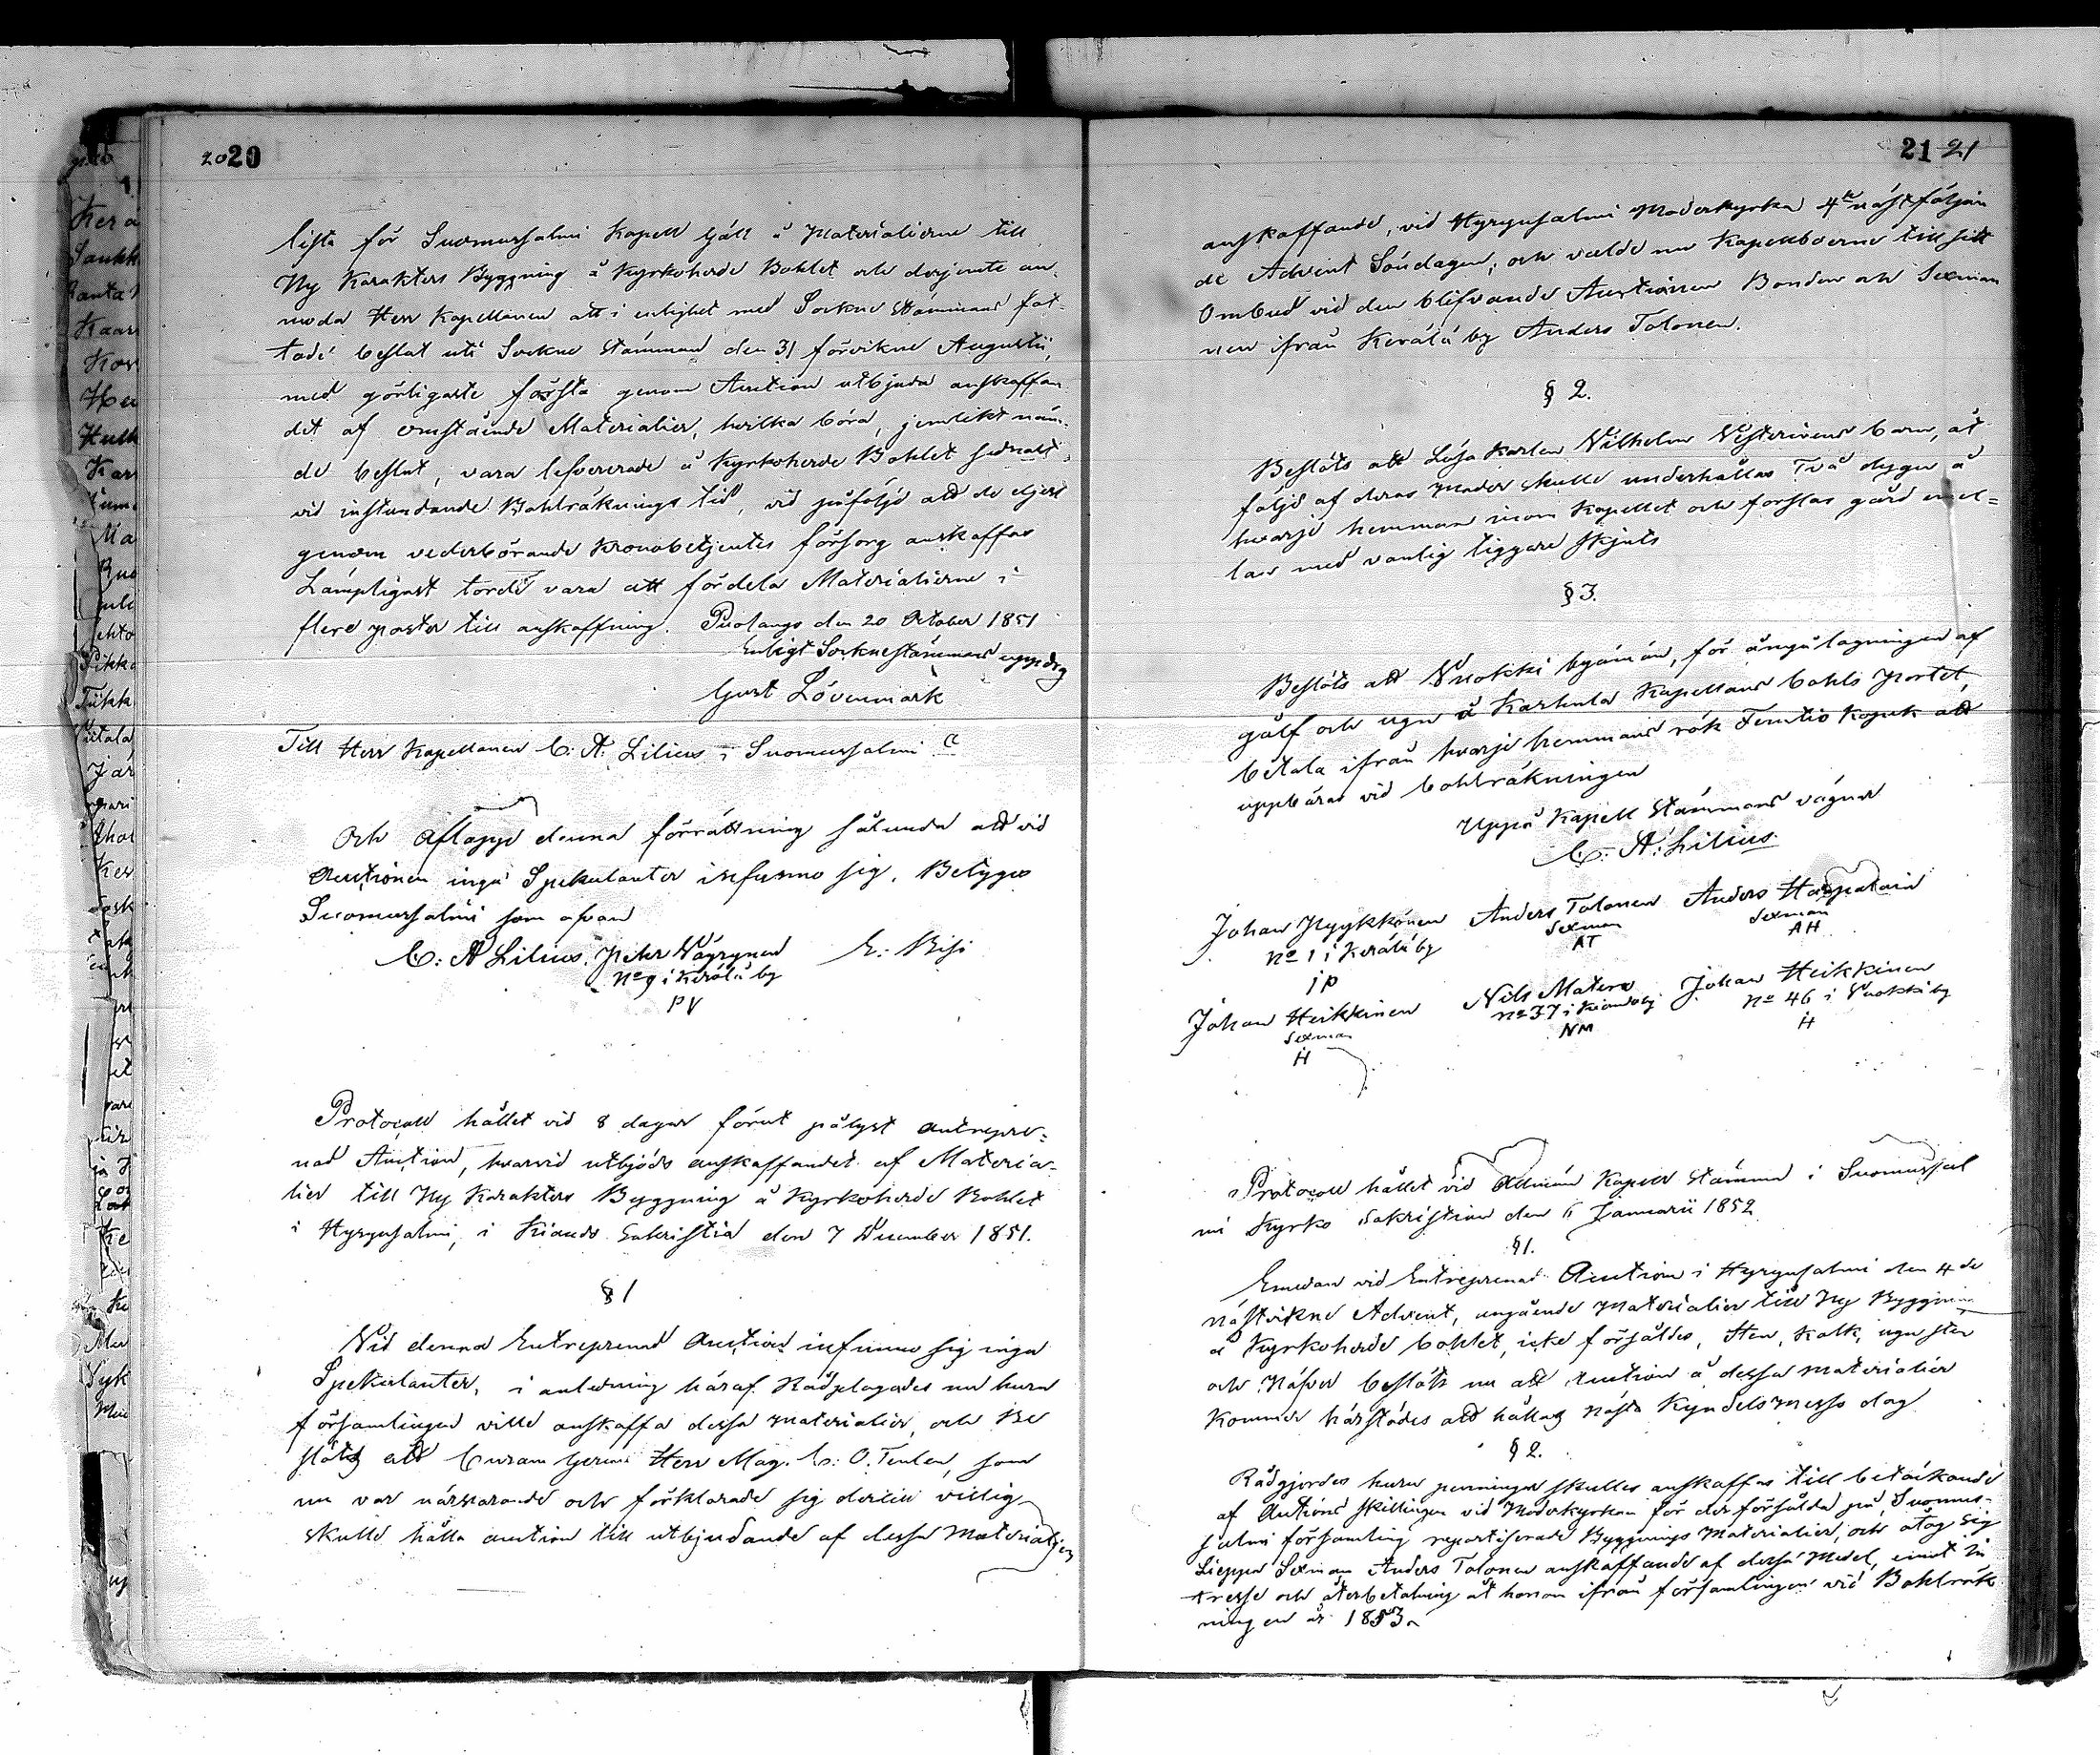 20 20
lista för Suomussalmi Kapell Gäll å Materialierne till
Ny Karakters Byggning å Kyrkoherde Bohlet och derjemte an-
moda Herr Kapellanen att i enlighet med Sockne Stämmans fat-
tade beslut uti Sockne Stämman den 31 förvikne Augustii,
med görligaste första genom Auction utbjuda anskaffan
det af omstående Materialier, hvilka böra, jemlikt näm-
de beslut, vara lefvererade å Kyrkoherde Bohlet sednast
vid instundande Bohlräknings tid, vid påföljd att de eljest
genom vederbörande Kronobetjentes försorg anskaffas
Lämpligast torde vara att fördela Materialierne i
flere poster till anskaffning. Puolango den 20 October 1851
Enligt Socknestämmans uppdrag
Gust Lövenmark
Till Herr Kapellanen C: A: Lilius i Suomussalmi
Och Aflopp denna förrättning sålunda att vid
Auctionen inga Spekulanter infunno sig. Betygas
Suomussalmi som ofvan
C: A Lilius. Petr Väyrynen E: Kisi
No 9 i Kerälä by
PV
Protocoll hållet vid 8 dagar förut pålyst entrepre-
nad Auction, hvarvid utbjöds anskaffandet af Materia-
lier till Ny Karakters Byggning å Kyrkoherde Bohlet
i Hyrynsalmi, i Kiando Sakristia den 7 December 1851.
§ 1
Vid denna Entreprenad Auction infunno sig inga
Spekulanter, i anledning häraf Rådplagades nu huru
församlingen ville anskaffa dessa materialier och Be
slöts att Curam Gerens Herr Mag. C: O. Tenlen, som
nu var närvarande och förklarade sig dertill villig
skulle hålla auction till utbjudande af dessa Materialiers
21 21
anskaffande, vid Hyrynsalmi Moderkyrka 4de nästföljan
de Advent Söndagen; och valde nu Kapellboerne till sitt
Ombud vid den blifvande Auctionen Bonden och Sexman
nen ifrån Kerälä by Anders Tolonen.
§ 2.
Beslöts att Lösa Karlen Wilhelm Westerinens barn, åt
följd af deras Moder skulle underhållas Två dygn å
hvarje hemman inom Kapellet och forslas gård emel=
lan med vanlig tiggare skjuts
§ 3.
Beslöts att Wuokki byamän, för ånyo lagningen af
golf och ugn å Karhula Kapellans bohls Pörtet,
betala ifrån hvarje hemmans rök Femtio Kopek att
uppbäras vid bohlräkningen
Uppå Kapell Stämmans vägnar
C: A: Lilius.
Johan Pyykkönen Anders Tolonen Anders Haapalain
No 1 i Kerälä by Sexman Sexman
IP AT AH
Johan Heikkinen Nils Matero Johan Heikkinen
Sexman No 37 i Kianda by No 46 i Wuokki by
H NM H
Protocoll hållet vid Allmän Kapell Stämma i Suomussal
mi Kyrko Sakristian den 6 Januarii 1852
§ 1.
Emedan vid Entreprenad Auction i Hyrynsalmi den 4de
nästvikne Advent, angående Materialier till Ny Byggning
å Kyrkoherde bohlet, icke försåldes, Sten, Kalk, ugn sten
och Näfver beslöts nu att Auction å dessa Materialier
Kommer härstädes att hållas nästa Kyndelsmesso dag
§ 2.
Rådgjordes huru penningar skulles anskaffas till betäckande
af Auctions skillingen vid Moderkyrkan för der försålda på Suomus-
salmi församling repartiserade Byggnings Materialier, och åtog sig
Sexman Anders Tolonen anskaffande af dessa Medel, emot In
tresse och återbetalning åt honom ifrån församlingen vid Bohlräk
ningen år 1853.